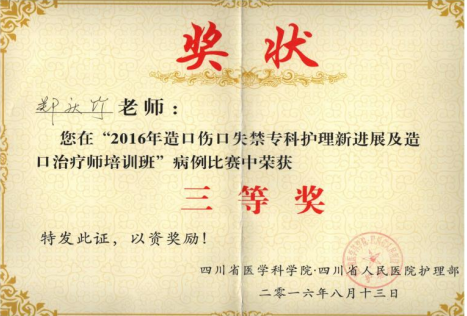 奖状
郑 老师：
您在“2016年造口伤口失禁专科护理新进展及造
口治疗师培训班”病例比赛中荣获
三等奖
特发此证，以资奖励！
四川省医学科学院·四川省人民医院护理部
二〇一六年八月十三日